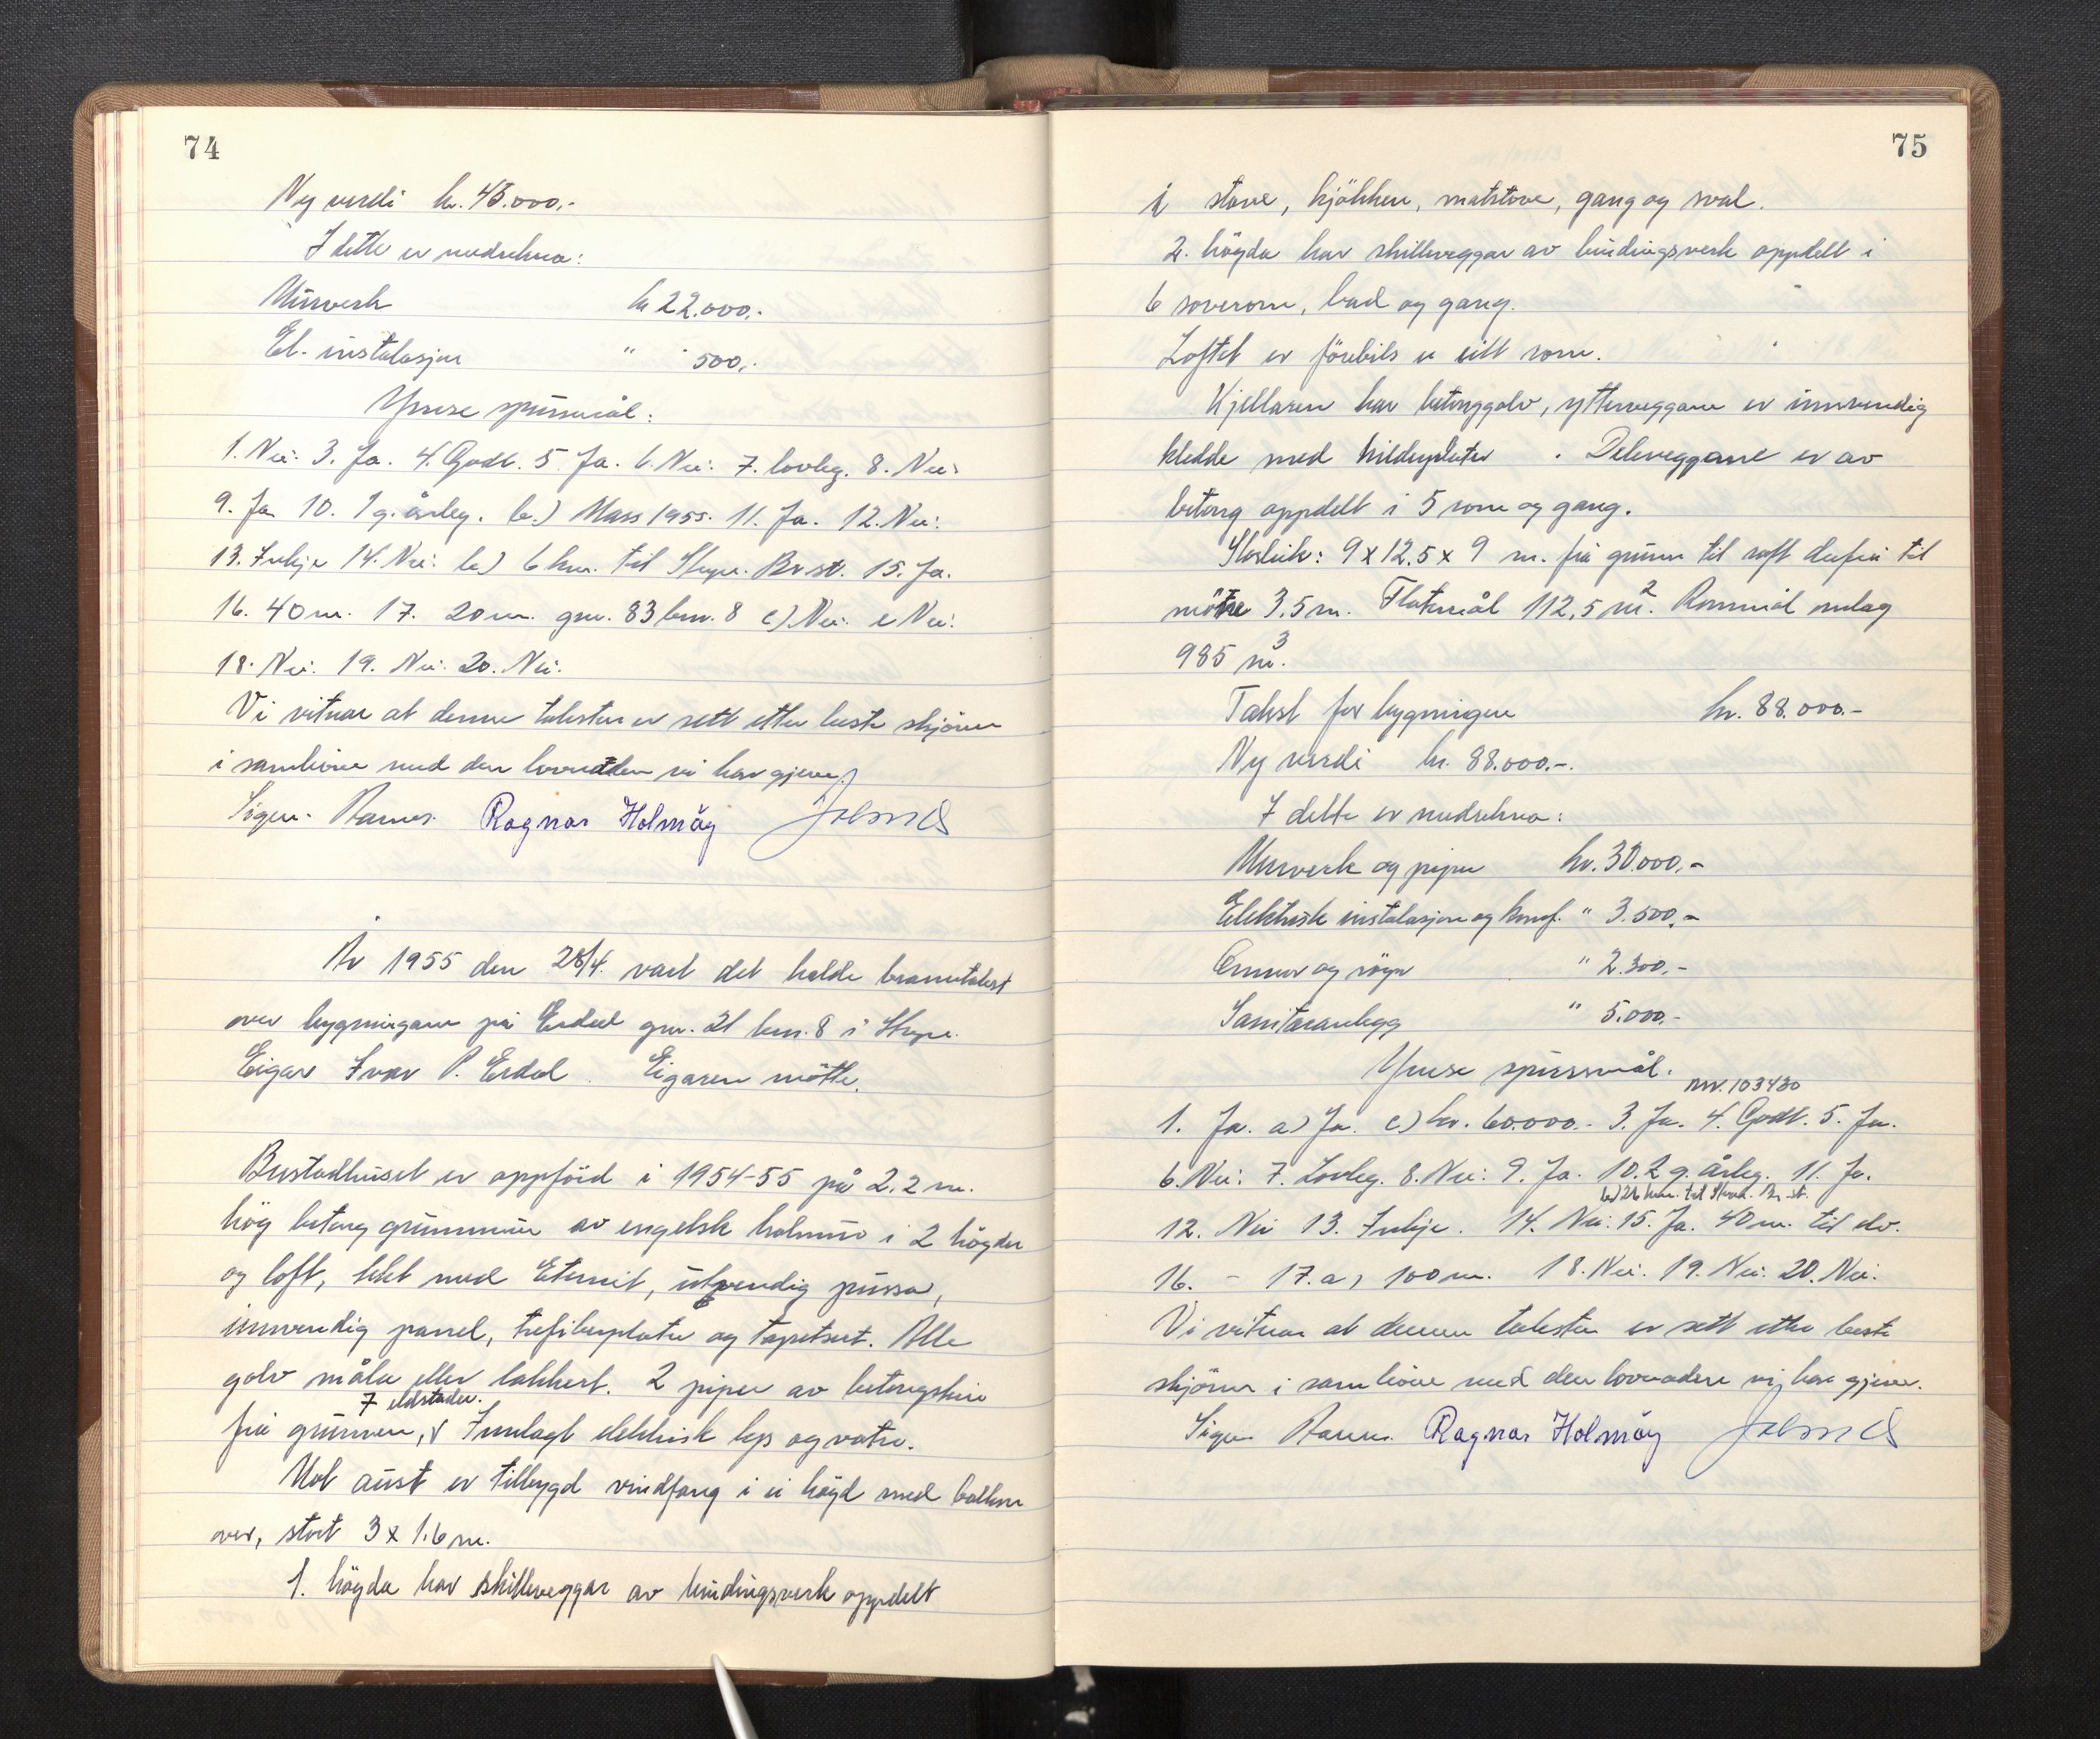 74
Ny verdi kr. 43.000,-
I dette er medrekna:
Murverk kr 22.000.-
El. instalasjon " 500,-
Ymse spursmål:
1. Nei. 3. Ja. 4. Godt. 5 Ja. 6. Nei. 7. lovleg. 8. Nei.
9. Ja 10. 1 g. årleg. b.) Mars 1955. 11. Ja. 12. Nei.
13. Inkje 14. Nei. b) 6 km. til Steyn. Br.st. 15. Ja.
16. 40 m. 17. 20 m. gnr. 83 bnr. 8 c) Nei. e Nei.
18. Nei. 19. Nei. 20. Nei.
Vi vitnar at denne taksten er sett etter beste skjönn
i samhöve med den lovnaden vi har gjeve.
Sigm. Ragnar Holmöy
År 1955 den 28/4. vart det halde branntakst
over bygningane på Erdal gnr. 21 bnr. 8 i
Eigar Ivar P. Erdal. Eigaren mötte.
Bustadhuset er oppförd i 1954-55 på 2,2 m.
hög betong grunnmur av engelsk holmur i 2 högder
og loft, tekt med Eternit, utvendig pussa,
innvendig panel, trefiberplater og tapetsert. Alle
golv måla eller lakkert. 2 piper av betongstein
7 eldstader.
frå grunnen, v Innlagt elektrisk lys og vatn.
Mot aust er tilbygd vindfang i ei högd med balkon
over, stort 3 x 1.6 m.
1. högda har skilleveggar av bindingsverk oppdelt
75
i stove, kjökken, matstove, gang og sval.
2. högda har skilleveggar av bindingsverk oppdelt i
6 soverom, bad og gang.
Loftet er förebils eitt rom.
Kjellaren har betonggolv, ytterveggane er innvendig
kledde med . Deleveggane er av
betong oppdelt i 5 rom og gang.
Storleik: 9 x 12,5 x 9 m. frå grunn til raft derfrå til
möne 3.5 m. Flatemål 112,5 m². Rommål omlag
985 m³.
Takst for bygningen kr. 88.000.-
Ny verdi kr. 88.000.-.
I dette er medrekna:
Murverk og piper kr. 30.000,-
Elektrisk instalasjon og komf. " 3.500,-
Omnar og rögr " 2.300,-
Sanitæranlegg " 5.000.-
Ymse spursmål.
nr. 103430
1. Ja. a) Ja. c) kr. 60.000.- 3. Ja. 4. Godt. 5. Ja.
6. Nei. 7. Lovleg. 8. Nei. 9. Ja. 10. 2 g. årleg. 11. Ja.
til Br. st.
12. Nei 13. Inkje. 14. Nei. 15. Ja. 40 m. til elv.
16. - 17. a) 100 m. 18. Nei. 19. Nei. 20. Nei.
Vi vitnar at denne taksten er sett etter beste
skjönn i samhöve med den lovnaden vi har gjeve.
Sigm. Ragnar Holmöy